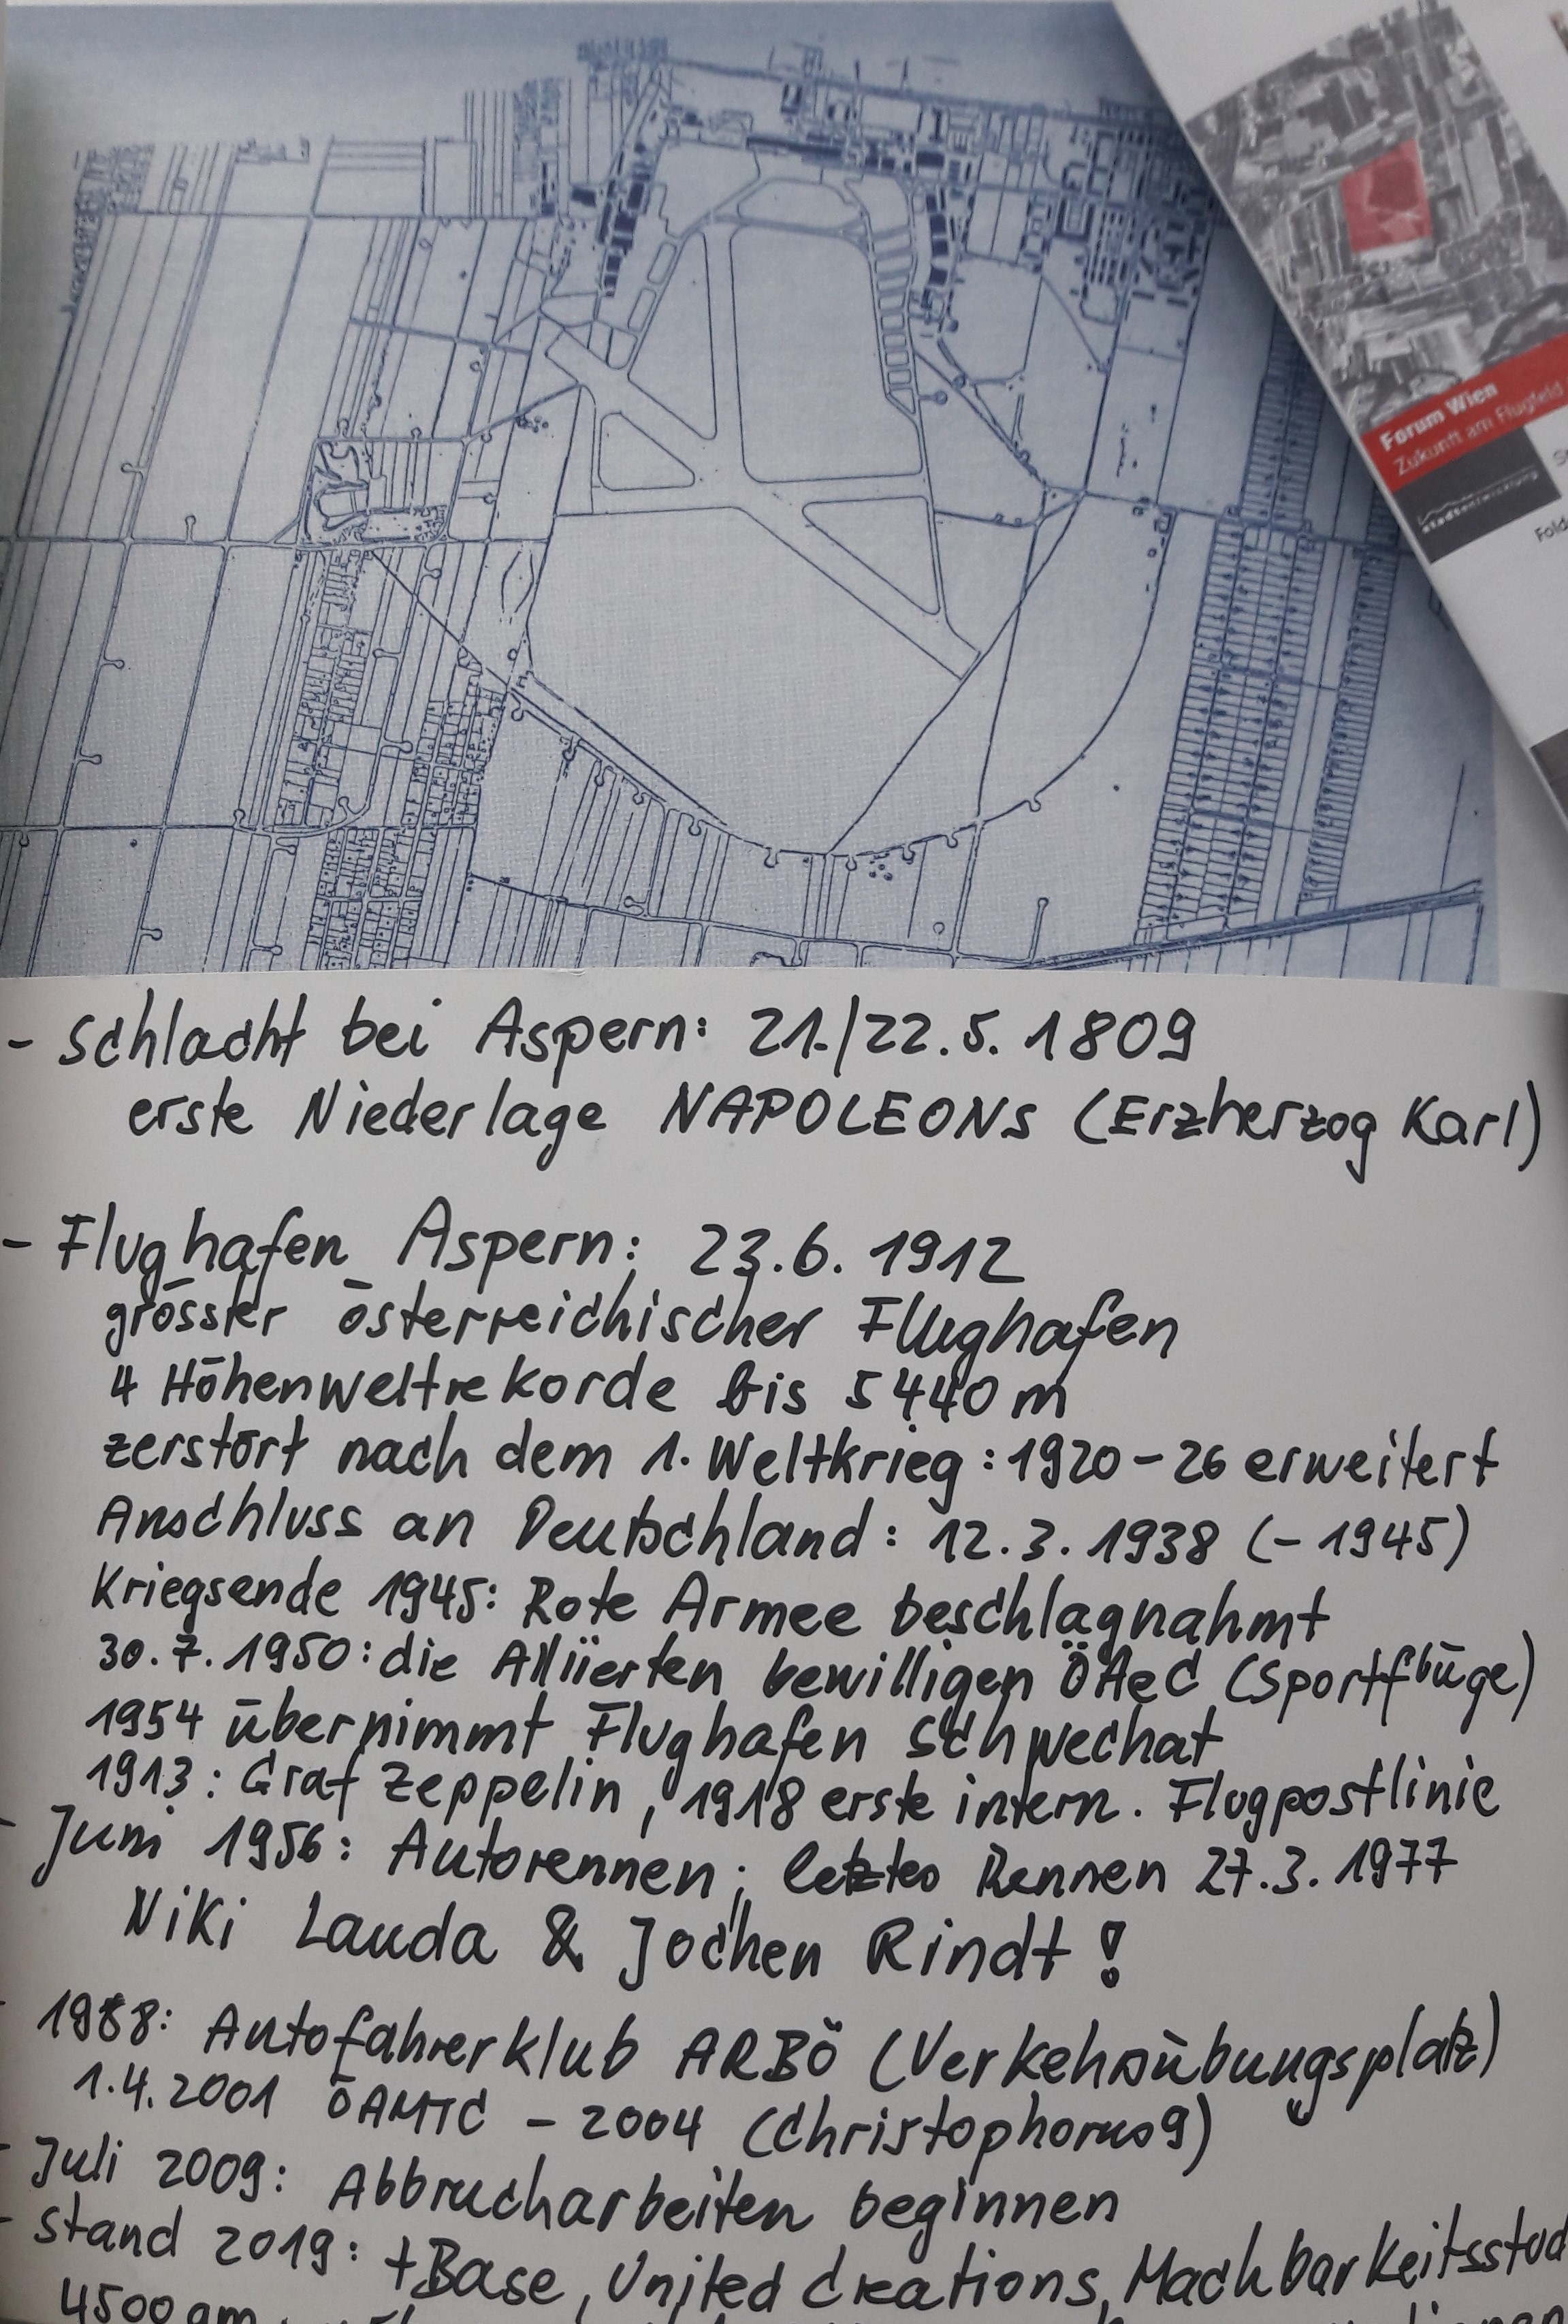 Forum Wien
Zukunft am Flugfeld
stadtentwicklung
- Schlacht bei Aspern: 21./22.5.1809
erste Niederlage NAPOLEONS (Erzherzog Karl)
- Flughafen Aspern: 23.6.1912
grösster österreichischer Flughafen
4 Höhenweltrekorde bis 5440 m
zerstört nach dem 1. Weltkrieg: 1920-26 erweitert
Anschluss an Deutschland: 12.3.1938 (-1945)
Kriegsende 1945: Rote Armee beschlagnahmt
30.7.1950: die Alliierten bewilligen ÖAeC (Sportflüge)
1954 übernimmt Flughafen Schwechat
1913: Graf Zeppelin, 1918 erste intern. Flugpostlinie
- Juni 1956: Autorennen; letztes Rennen 27.3.1977
Niki Lauda & Jochen Rindt!
- 1988: Autofahrerklub ARBÖ (Verkehrsübungsplatz)
1.4.2001 ÖAMTC - 2004 (Christophorus 9)
- Juli 2009: Abbrucharbeiten beginnen
- Stand 2019: +Base, United Creations, Machbarkeitsstud
4500 qm